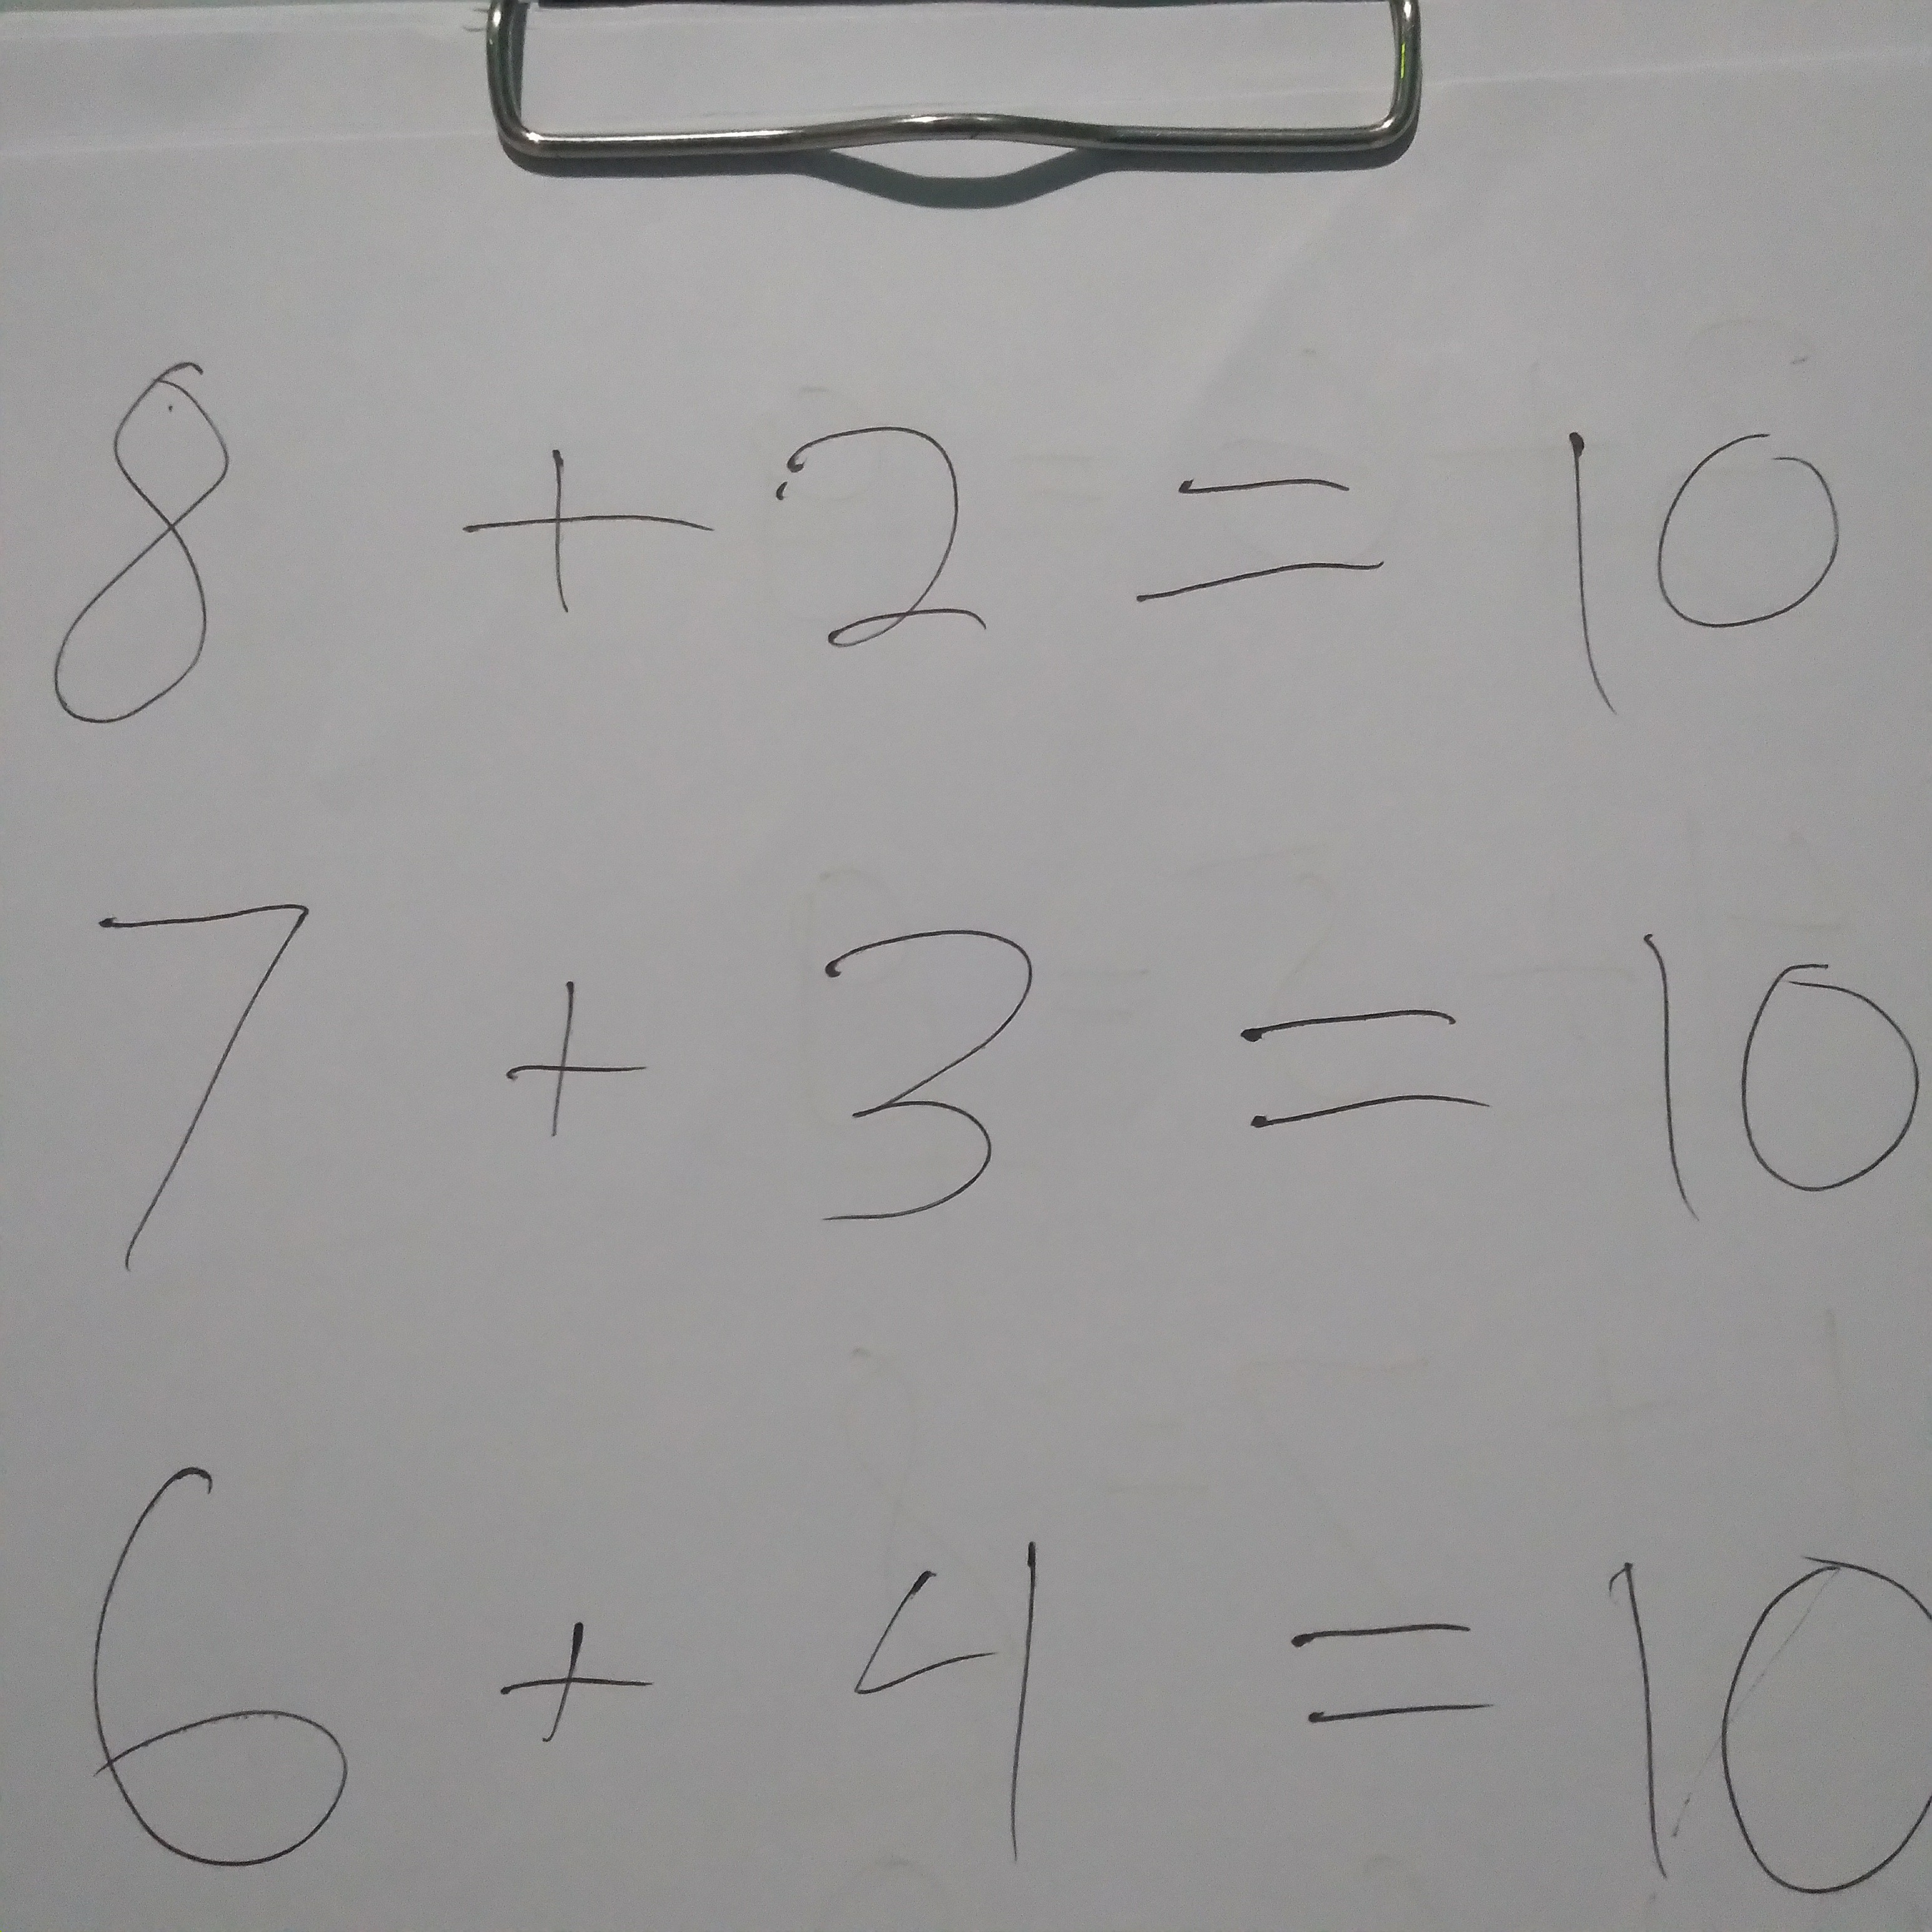 8 + 2 = 10
7 + 3 = 10
6 + 4 = 10